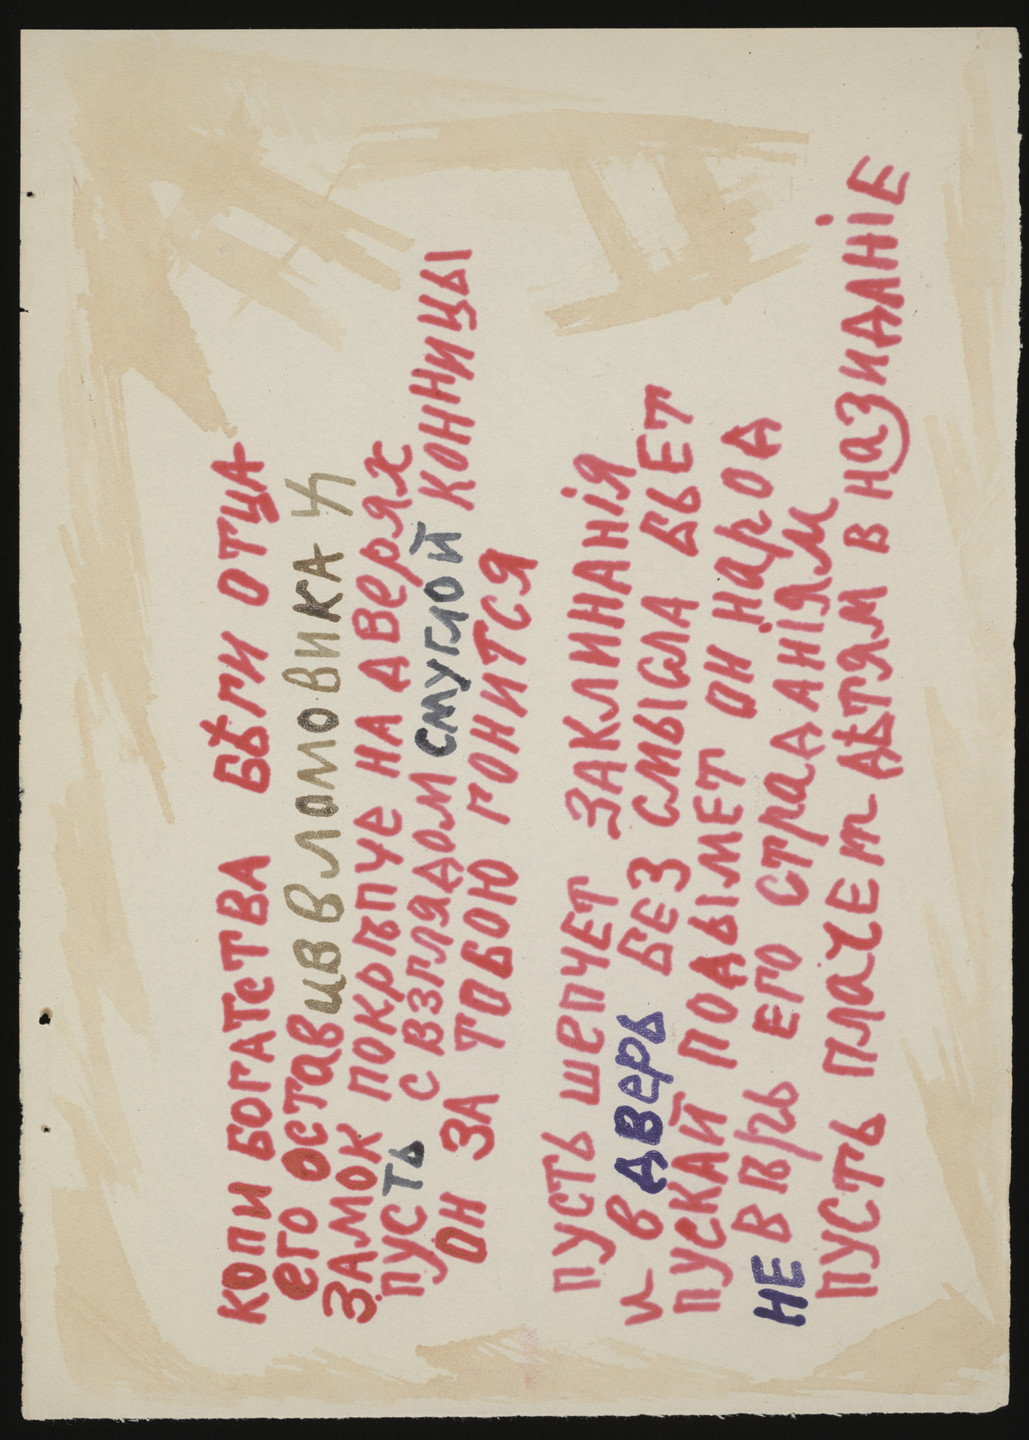 КОПИ БОГАТСТВА БѢГИ ОТЦА
ЕГО ОСТАВ ШВ ВЛОМОВИКА
ЗАМОК ПОКРѢПЧЕ НА ДВЕРЯХ
ПУСТЬ С ВЗГЛЯДОМ СМУГЛОЙ КОННИЦЫ
ОН ЗА ТОБОЮ ГОНИТСЯ
ПУСТЬ ШЕПЧЕТ ЗАКЛИНАНІЯ
И В ДВЕРЬ БЕЗ СМЫСЛА БЬЕТ
ПУСКАЙ ПОДЫМЕТ ОН НАРОД
НЕ ВѢРЬ ЕГО СТРАДАНІЯМ
ПУСТЬ ПЛАЧЕТ ДѢТЯМ В НАЗИДАНІЕ